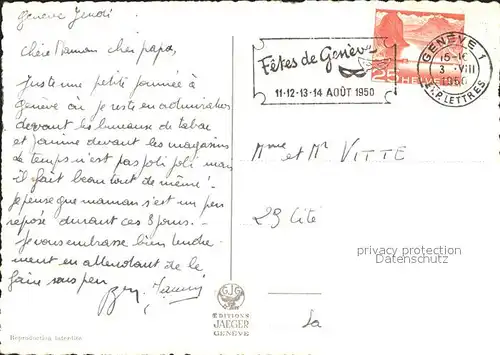 Genève Jeudi
Chère Maman cher papa,
Juste une petite journée à
Genève où je reste en admiration
devant les bureaux de tabac
et Janine devant les magasins
Le temps n'est pas joli joli mais
il fait beau tout de même.
Je pense que maman s'est un peu
reposé durant ces 3 jours.
Je vous embrasse bien tendre
ment en attendant de le
faire sous peu
Fêtes de Genève
11-12-13-14 AOÛT 1950
25 HELVETIA
GENÈVE 1
15-16
3 VIII
1950
EXP. LETTRES
Mme et Mr VITTE
29 Cité
privacy protection
www.ansichtskartenversand
GJG
EDITIONS
JAEGER
GENÈVE
Reproduction interdite